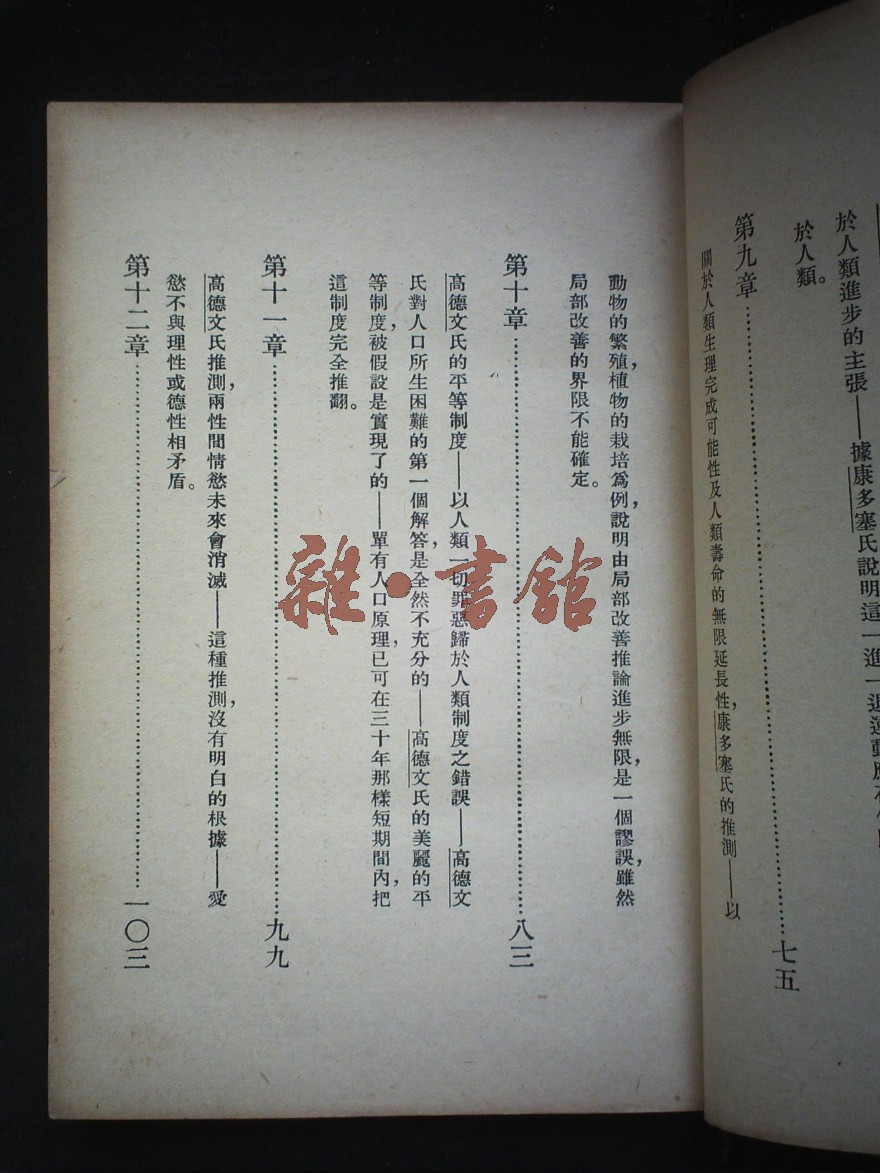 於人類進步的主張——據康多塞氏說明這一進一退運動應
於人類。
第九章……七五
關於人類生理完成可能性及人類壽命的無限延長性，康多塞氏的推測——以
動物的繁殖，植物的栽培爲例，說明由局部改善推論進步無限，是一個謬誤，雖然
局部改善的界限不能確定。
第十章……八三
高德文氏的平等制度——以人類一切罪惡歸於人類制度之錯誤——高德文
氏對人口所生困難的第一個解答，是全然不充分的——高德文氏的美麗的平
等制度，被假設是實現了的——單有人口原理，已可在三十年那樣短期間內，把
這制度完全推翻。
第十一章……九九
高德文氏推測，兩性間情慾未來會消滅——這種推測，沒有明白的根據——愛
慾不與理性或德性相矛盾。
第十二章……一〇三
雜·書館